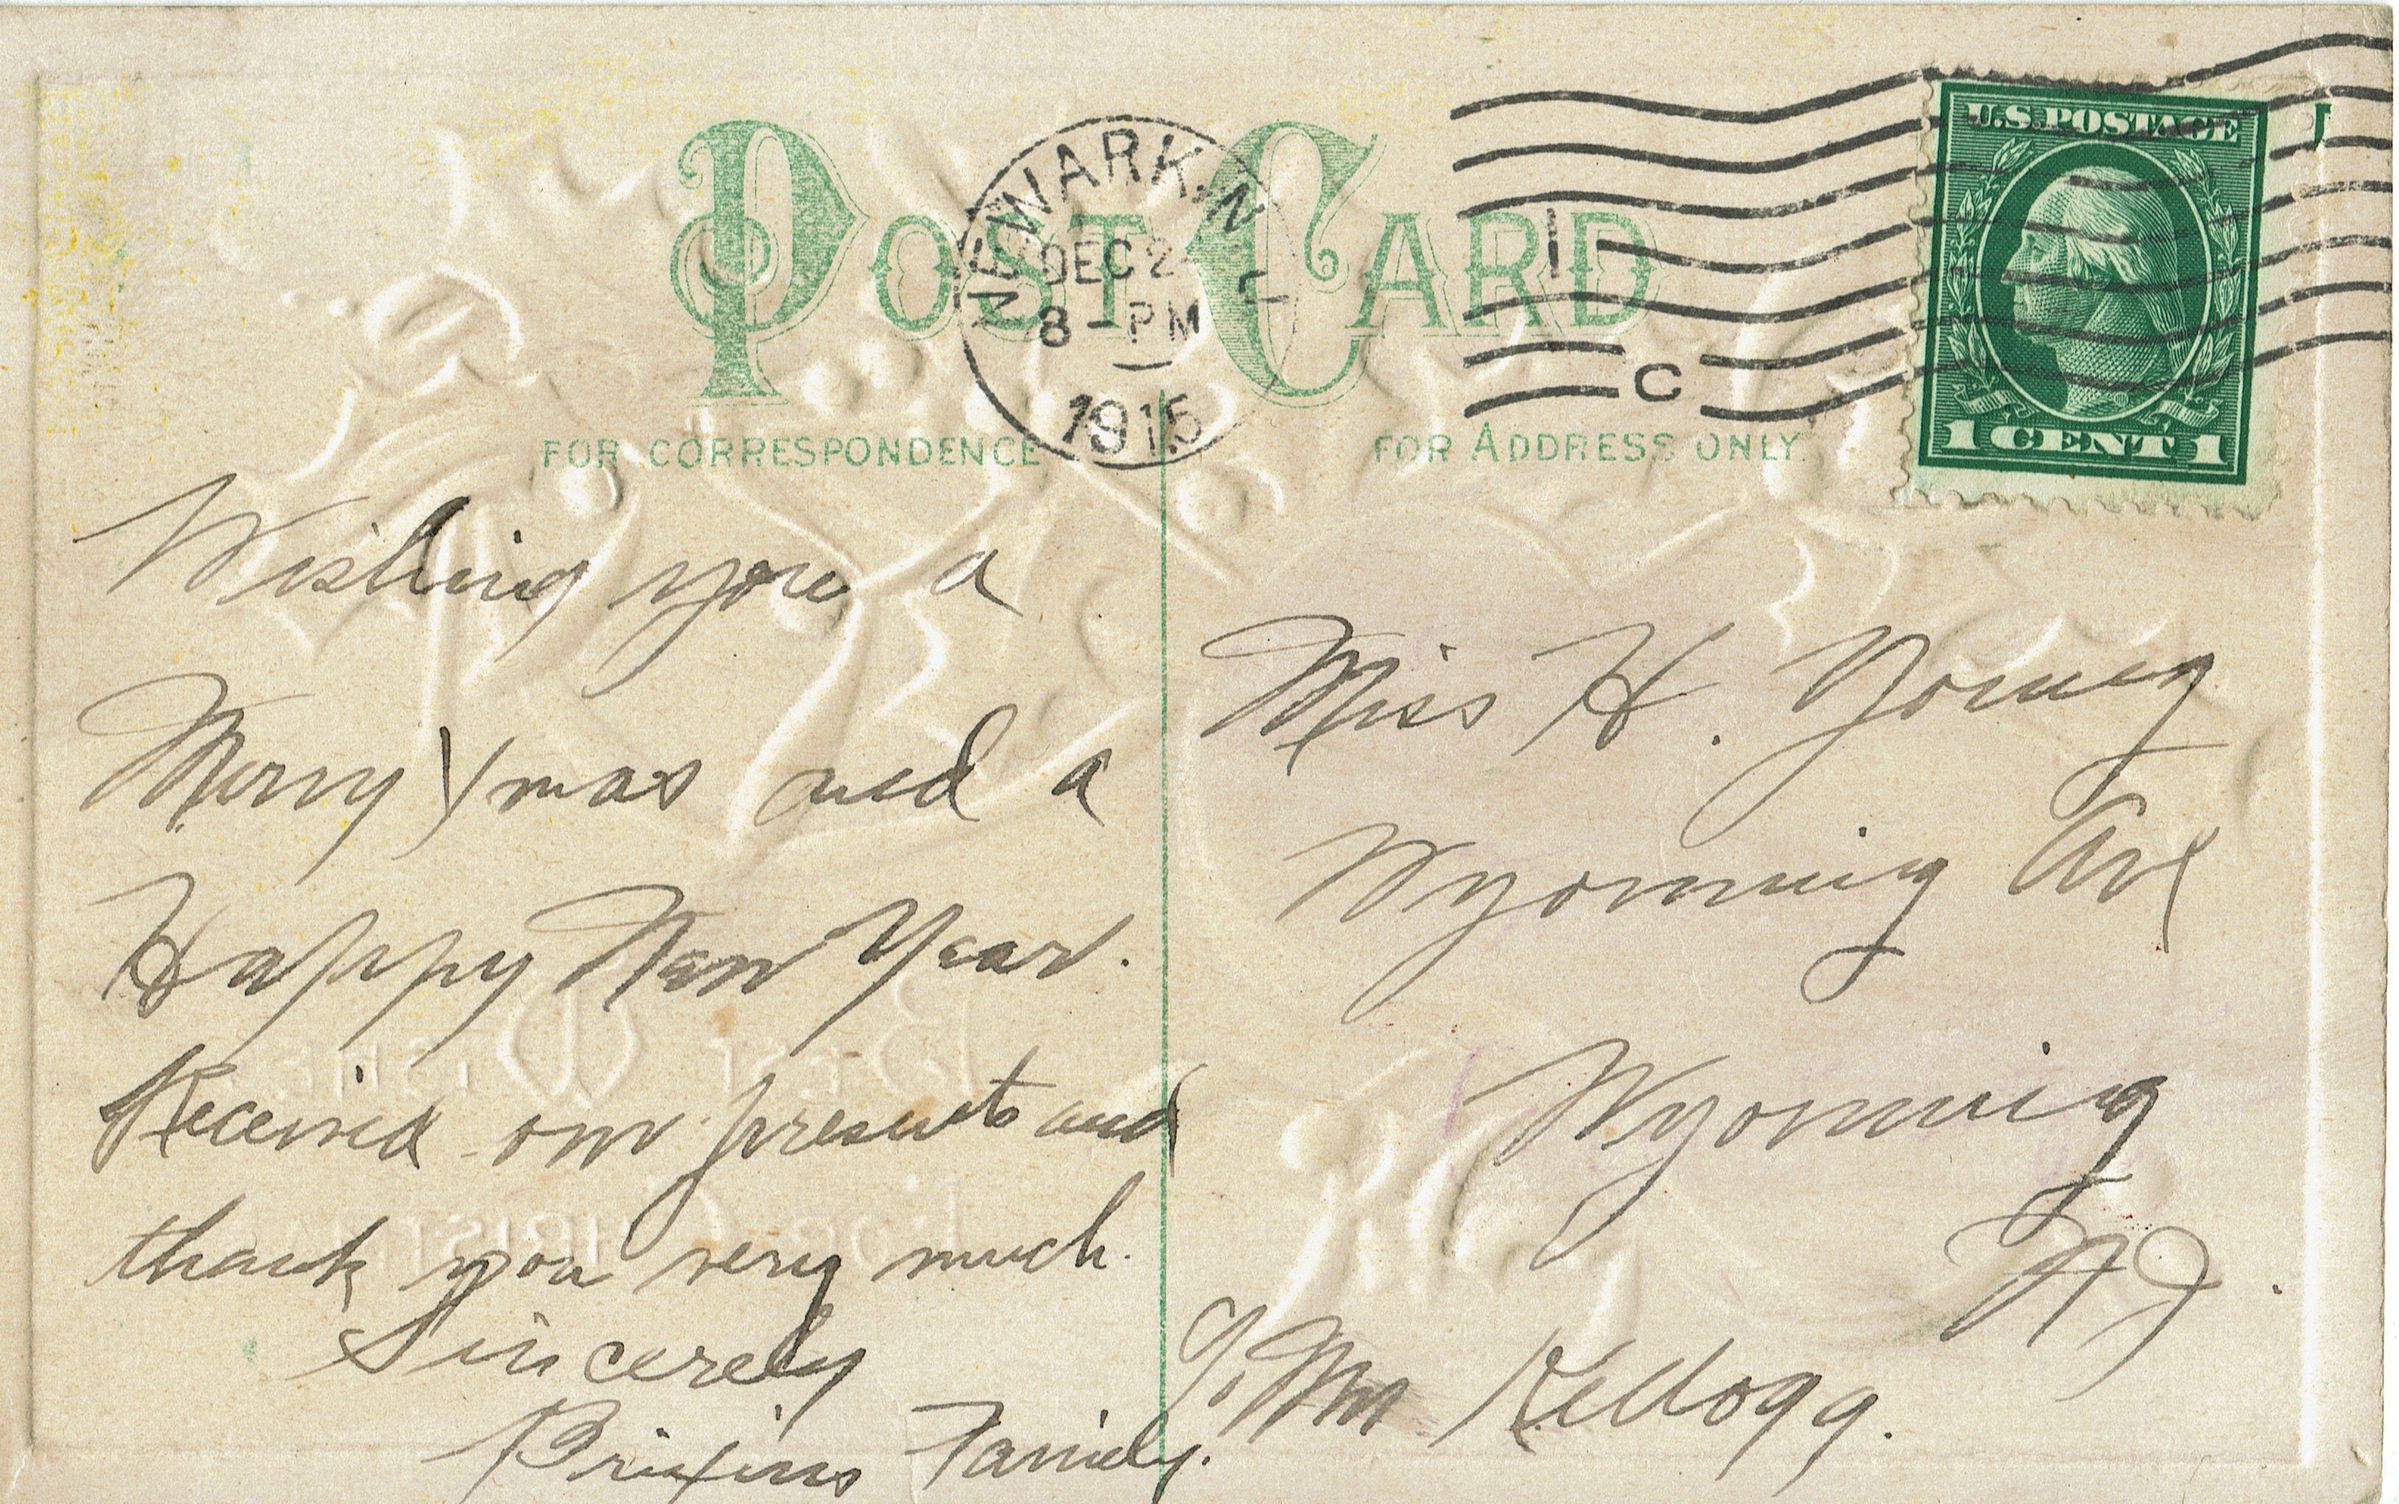 POST CARD
NEWARK, N.J.
DEC 2
8 - PM
1915
1
C
U.S. POSTAGE
1 CENT 1
FOR CORRESPONDENCE
FOR ADDRESS ONLY.
Wishing you a
Merry Xmas and a
Happy New Year.
Received our presents and
thank you very much.
Sincerely
Family.
Miss H. Young
Wyoming Ave
Wyoming
N J.
Kellogg.